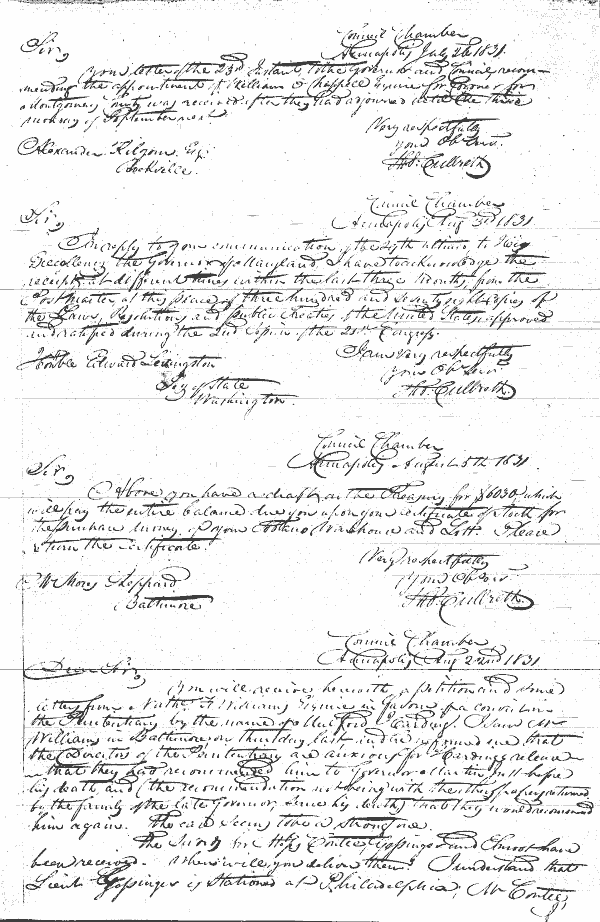 Council Chamber
Annapolis July 26 1831
Sir,
Your letter of the 23d Instant, to the Governor and Council recom-
mending the appointment of William O. Chappell Esquire for Coroner for
Montgomery County was received after they had adjourned until the third
monday of September next
Very respectfully
your Ob. Serv.
Tho. Culbreth
Alexander Kilgour Esq.
Rockville.
Council Chamber
Annapolis Aug 3d 1831
Sir,
In reply to your communication of the 27th ultimo, to His
Excellency the Governor of Maryland, I have to acknowledge the
receipt, at different times within the last three Months, from the
Post master at this place of three hundred and seventy eight copies of
the Laws, Resolutions and public Treaties of the United States, approved
and ratified during the 2nd Session of the 21st Congress.
I am very respectfully
your Ob. Serv.
Tho. Culbreth.
Honble Edward Livingston
Secy of State
Washington.
Council Chamber
Annapolis August 5th 1831.
Sir,
Above you have a draft on the Treasury for $6030 which
will pay the entire balance due you upon your certificate of stock for
the purchase money of your Warehouse and Lott. Please
return the certificate.
Very respectfully
Your Ob. Serv.
Tho. Culbreth.
Mr Moses Sheppard
Baltimore
Council Chamber
Annapolis Aug 22nd 1831
Dear Sir,
You will receive herewith, a petition and some
letters from Nathl. F Williams Esquire in favor of a convict in
the Penitentiary by the name of Harding. I saw Mr
Williams in Baltimore on thursday last and he informed me that
the Directors of the Penitentiary are anxious for Hardings release
that they had recommended him to Governor Martin just before
his death, and the recommendation not being with the papers returned
by the family of the late Governor, since his death, that they would recommend
him again. The case seems to be a strong one.
The Swords for Messrs Contee, Gossinger and Elmoot have
been received. When will you deliver them? I understand that
Lieut Gossinger is stationed at Philadelphia, Mr Contee,